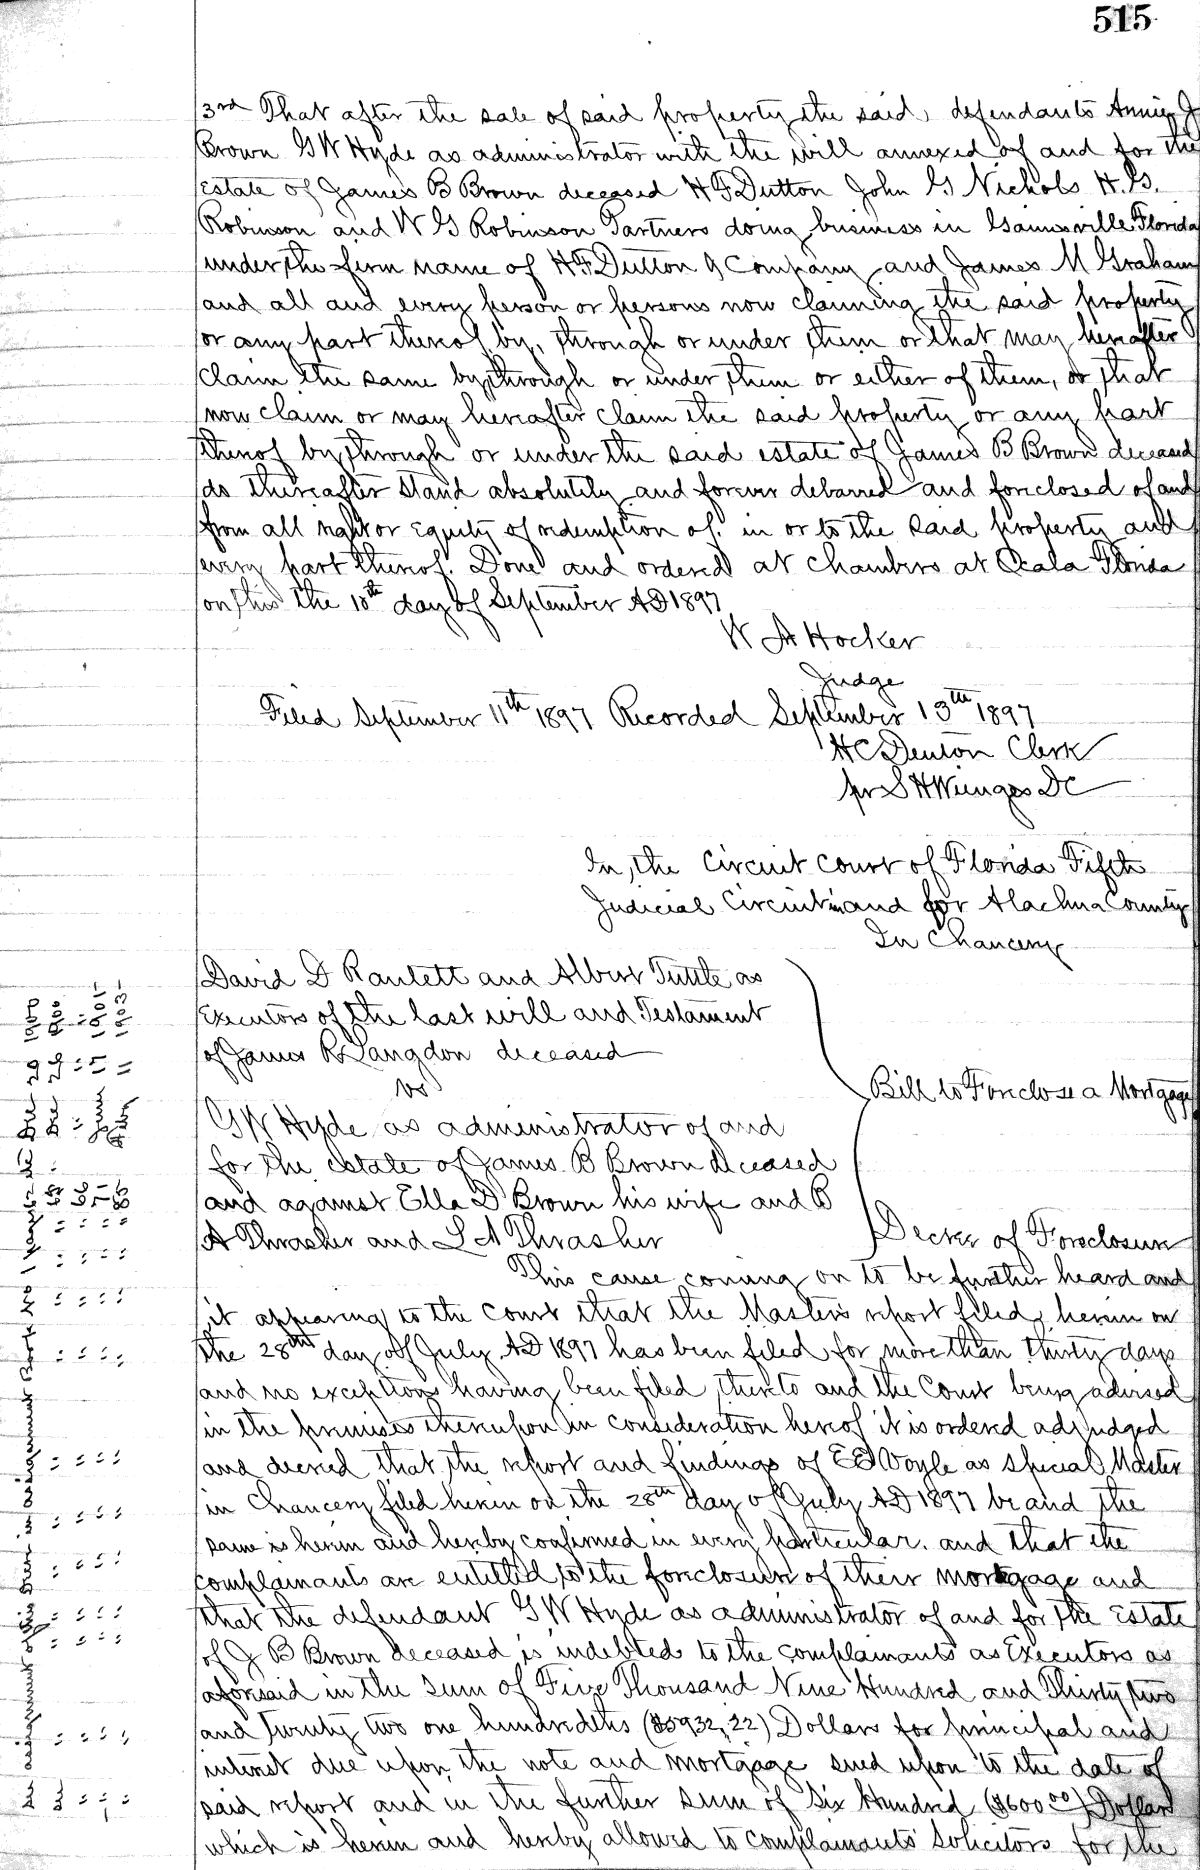 515
3rd That after the sale of said property the said defendants Annie J
Brown G W Hyde as administrator with the will annexed of and for the
Estate of James B Brown deceased H F Dutton John G Nichols H. G.
Robinson and W G Robinson Partners doing business in Gainesville Florida
under the firm name of H F Dutton & Company and James M Graham
and all and every person or persons now claiming the said property
or any part thereof by, through or under them or that may hereafter
claim the same by, through or under them or either of them, or that
now claim or may hereafter claim the said property or any part
thereof by through or under the said estate of James B Brown deceased
do thereafter stand absolutely and forever debarred and foreclosed of and
from all right or equity of redemption of. in or to the said property and
every part thereof. Done and ordered at Chambers at Ocala Florida
on this the 10th day of September AD 1897
W A Hocker
Judge
Filed September 11th 1897 Recorded September 13th 1897
H C Denton Clerk
pr S H Wienges DC
In, the Circuit Court of Florida Fifth
Judicial Circuit in and for Alachua County
In Chancery
David D Ranlett and Albert Tuttle as
Executors of the last will and Testament
of James R Langdon deceased
vs
G W Hyde as administrator of and
for the estate of James B Brown deceased
and against Ella D Brown his wife and B
A Thrasher and L A Thrasher
Bill to Foreclose a Mortgage
Decree of Foreclosure
This cause coming on to be further heard and
it appearing to the Court that the Masters report filed herein on
the 28th day of July AD 1897 has been filed for more than thirty days
and no exceptions having been filed thereto and the Court being advised
in the premises thereupon in consideration hereof it is ordered adjudged
and decreed that the report and findings of E E Voyle as Special Master
in Chancery filed herein on the 28th day of July AD 1897 be and the
same is herein and hereby confirmed in every particular. and that the
complainants are entitled to the foreclosure of their mortgage and
that the defendant G W Hyde as administrator of and for the Estate
of J B Brown deceased is indebted to the complainants as Executors as
aforesaid in the sum of Five Thousand Nine Hundred and Thirty two
and Twenty two one hundredths ($5932,22) Dollars for principal and
interest due upon the note and mortgage sued upon to the date of
said report and in the further sum of Six Hundred ($600 00) Dollars
which is herein and hereby allowed to complainants Solicitors for the